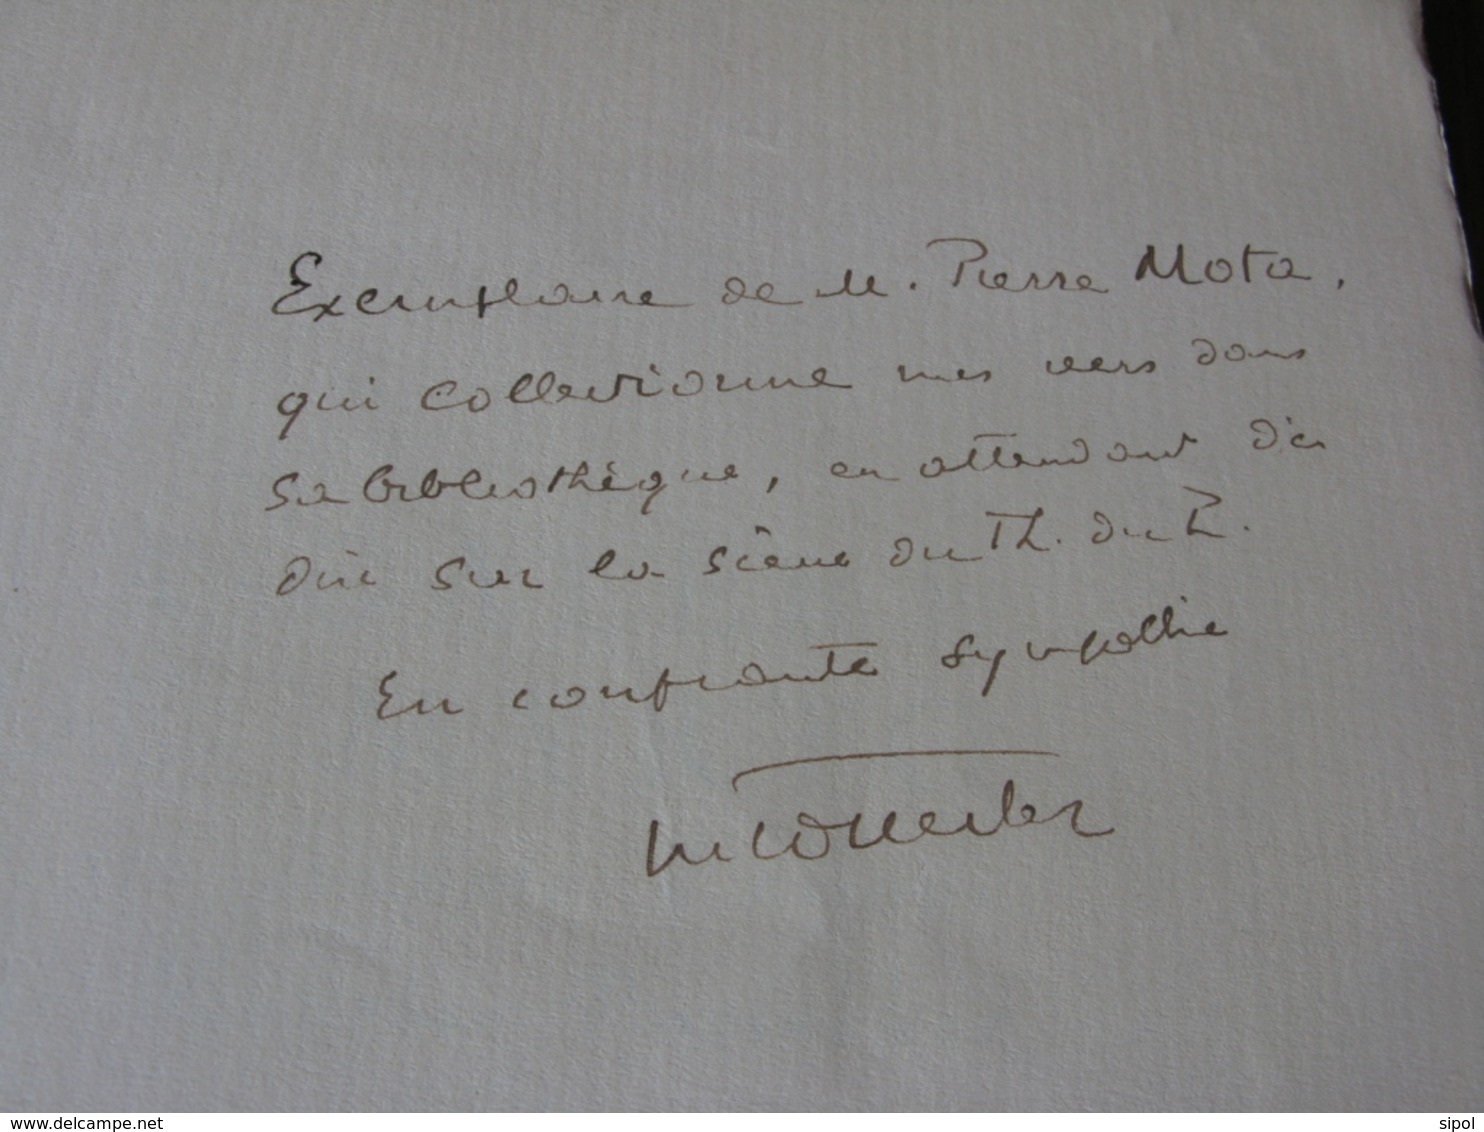 Exemplaire de M. Pierre Mota,
qui collectionne mes vers dans
sa bibliothèque, en attendant d'en
dire sur la scène du Th. du P.
En confiante sympathie
www.delcampe.net
sipol